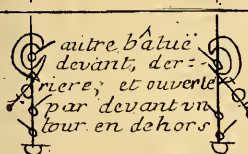 autre bâtuë
devant, der=
riere; et ouverte
par devant vn
tour en dehors